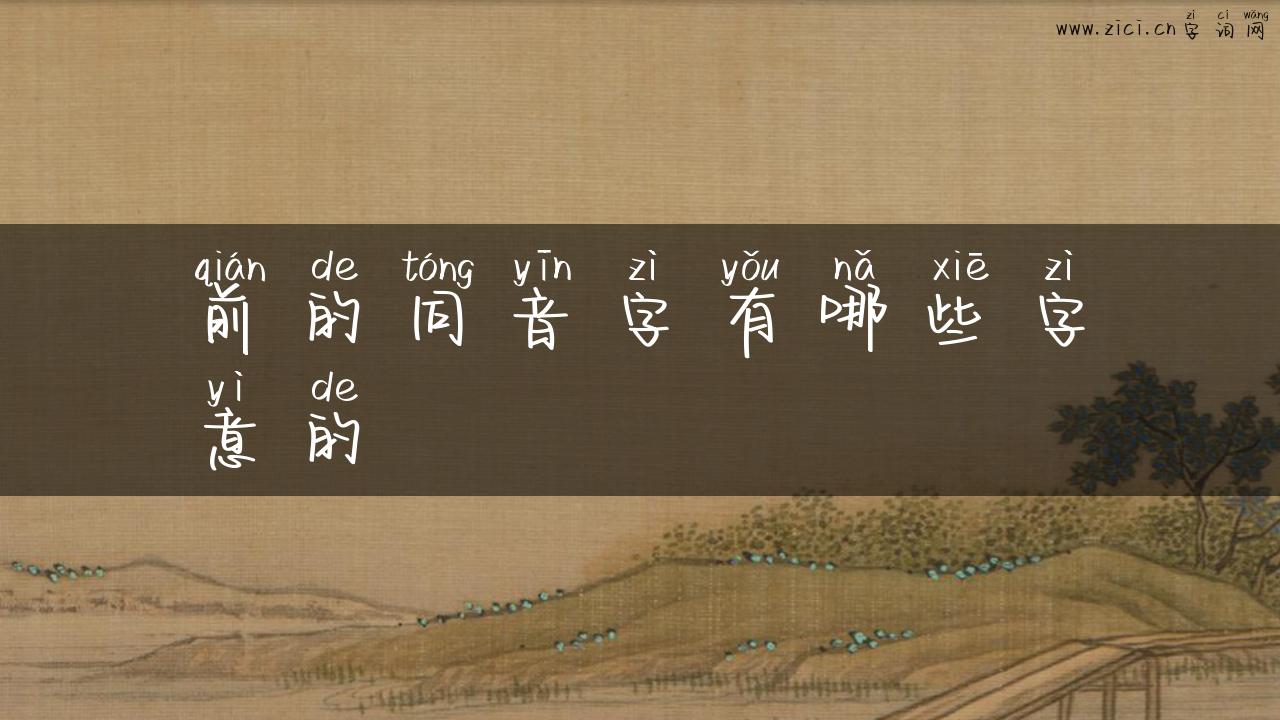 zì cí wǎng
www.zici.cn字词网
qián de tóng yīn zì yǒu nǎ xiē zì
前的同音字有哪些字
yì de
意的